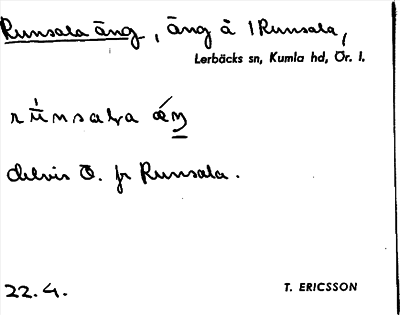 Runsala äng, äng å 1 Runsala,
Lerbäcks sn, Kumla hd, Ör. l.
delvis Ö. fr Runsala.
22.4.
T. ERICSSON